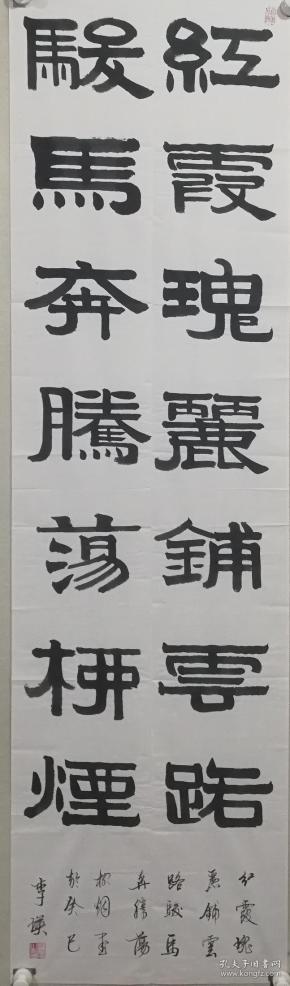 紅霞瑰麗鋪雲路
駿馬奔騰蕩柳煙
红霞瑰
麗鋪雲
路駿馬
奔騰蕩
柳烟 書
於癸巳
李瑛
孔夫子旧书网